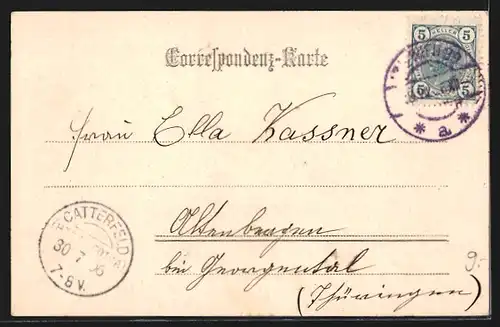 5 HELLER 5
5 5
Correspondenz-Karte
* a *
Frau Ella Kassner
CATTERFELD
30 7 06
7-8 V.
Altenbergen
bei Georgental
(Thüringen)
9.-